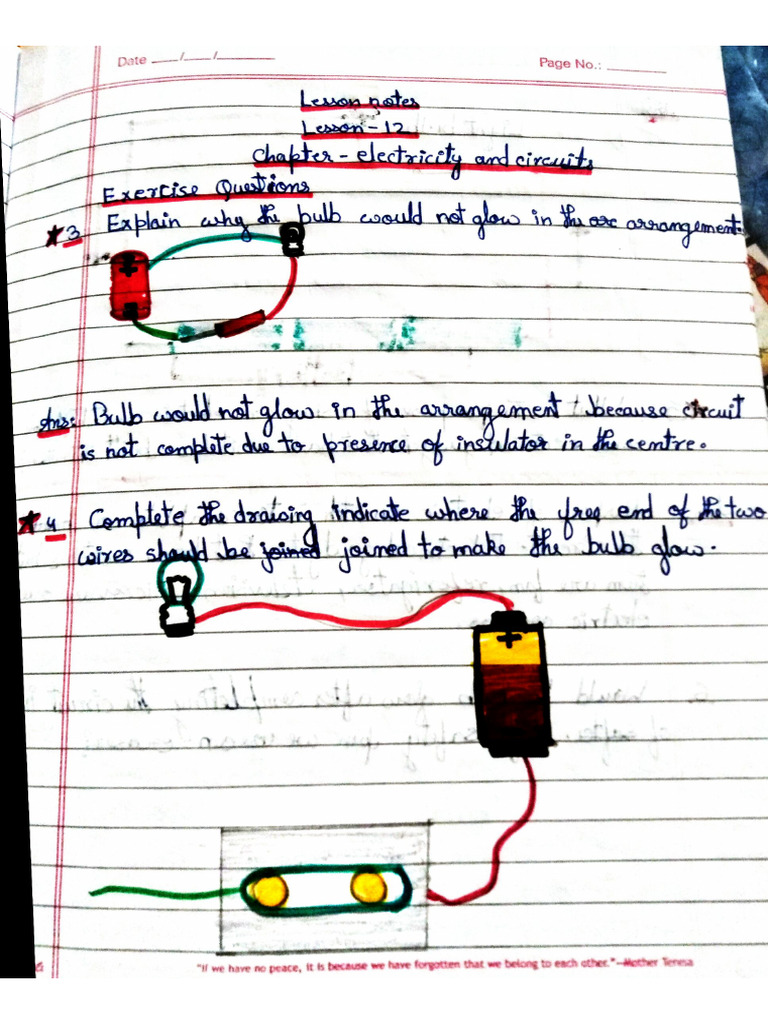 Date ___/___/___
Page No.: ___
Lesson notes
Lesson - 12
Chapter - electricity and circuits
Exercise Questions
★3 Explain why the bulb would not glow in the arc arrangement.
+
-
Ans: Bulb would not glow in the arrangement because circuit
is not complete due to presence of insulator in the centre.
★4 Complete the drawing indicate where the free end of the two
wires should be joined joined to make the bulb glow.
+
"If we have no peace, it is because we have forgotten that we belong to each other."—Mother Teresa